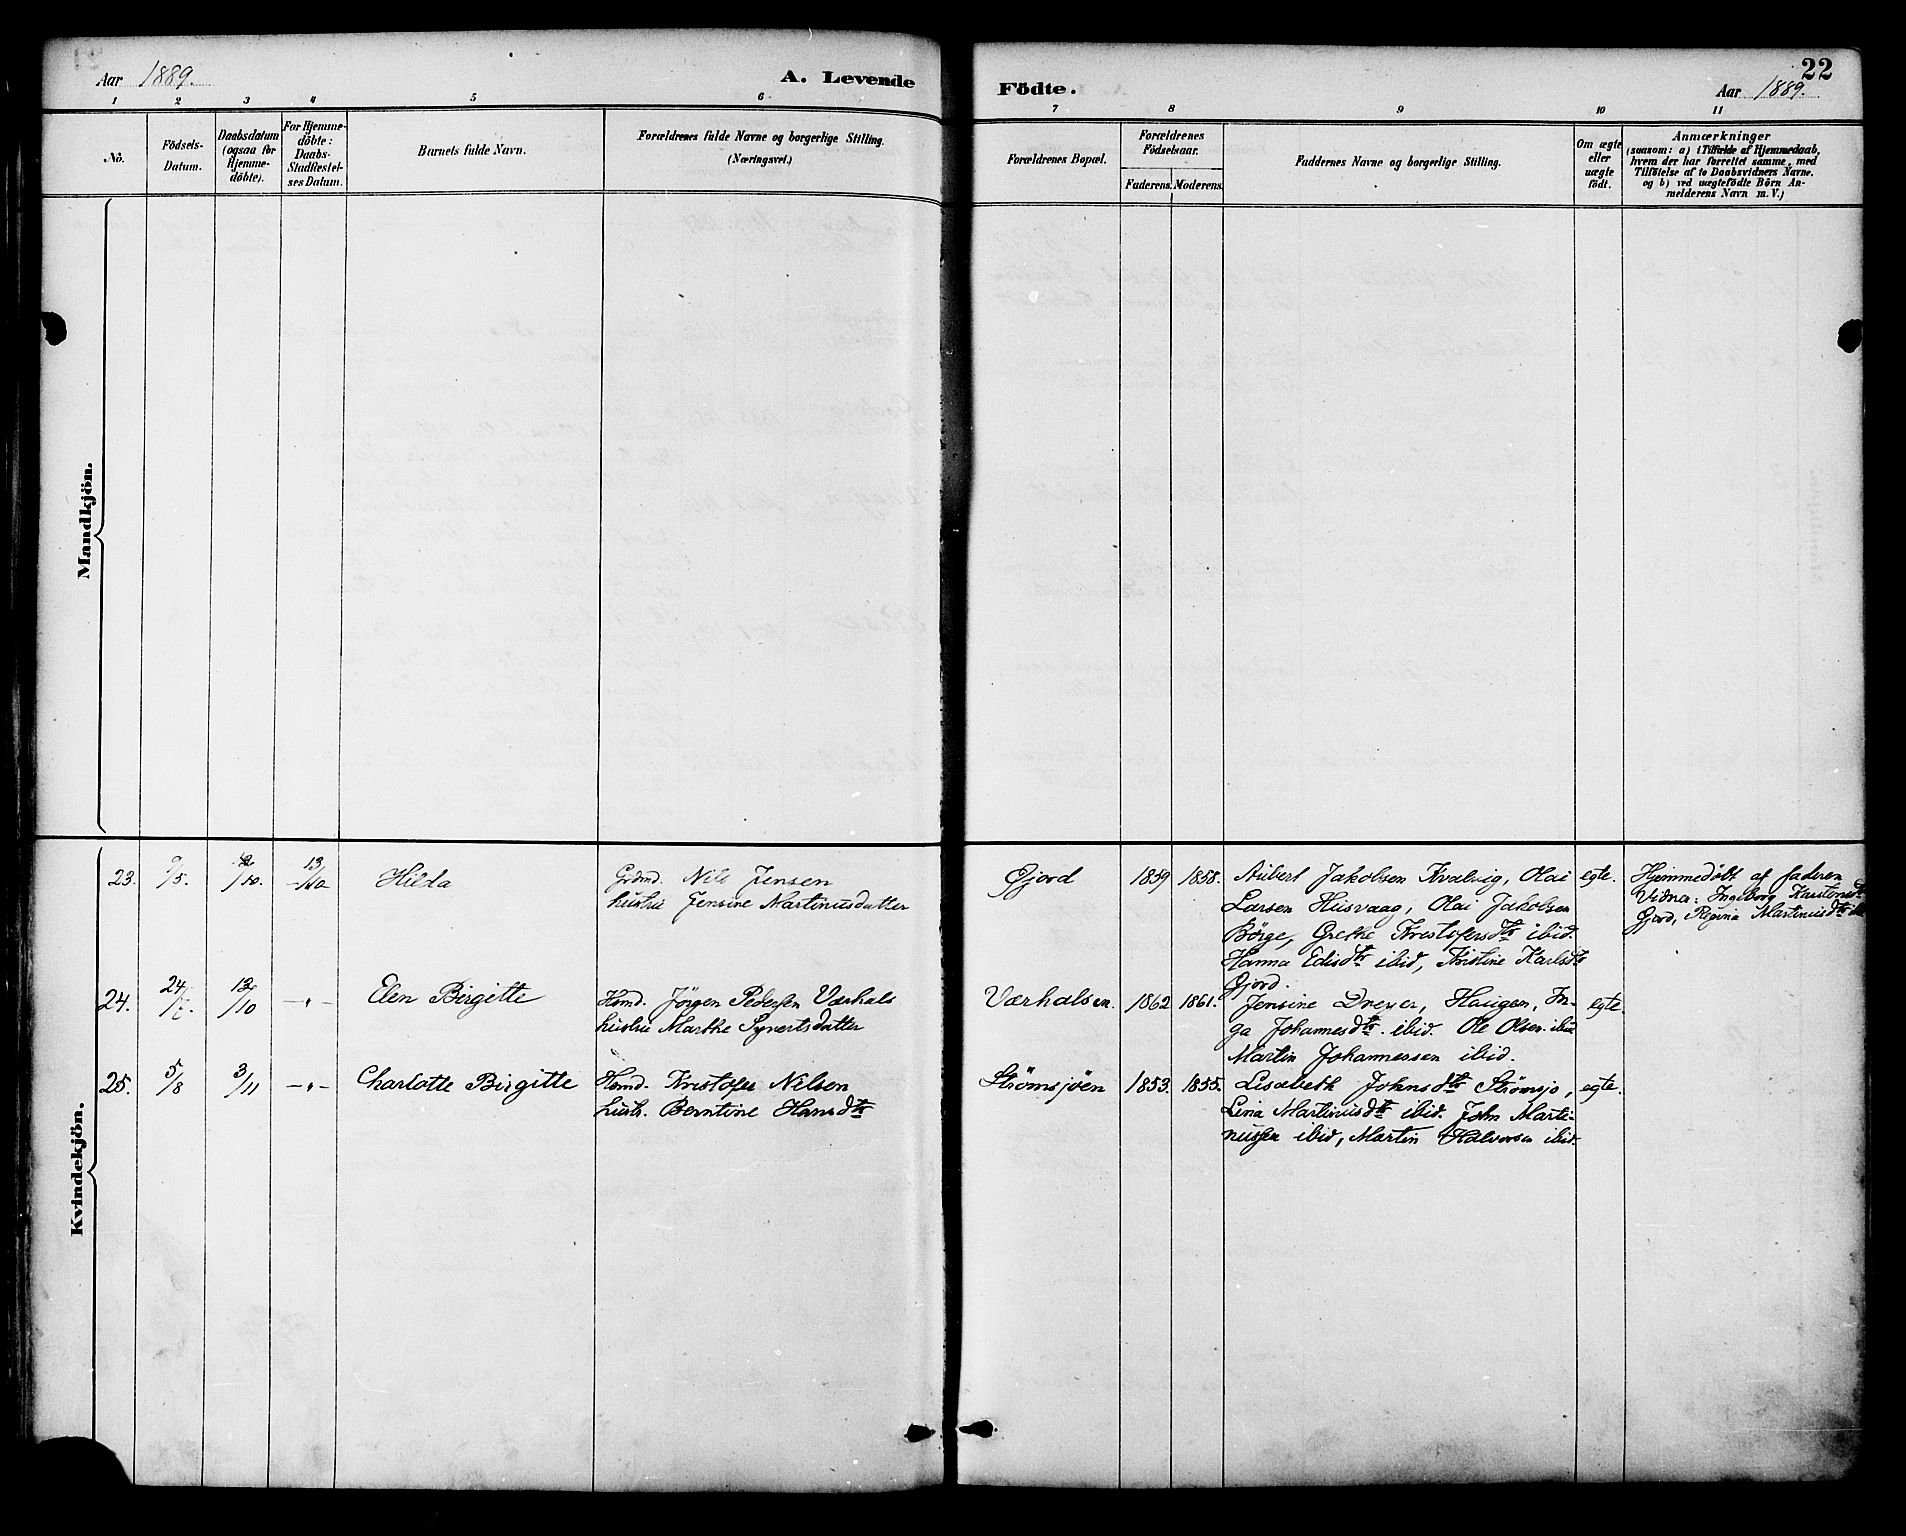 Aar 1889.
A. Levende
Födte.
Aar 1889.
22
1 2 3 4 5 6 7 8 9 10 11
No.
Födsels-
Datum.
Daabsdatum
(ogsaa for
Hjemme-
döbte).
For Hjemme-
döbte:
Daabs-
Stadfæstel-
ses Datum.
Barnets fulde Navn.
Forældrenes fulde Navne og borgerlige Stilling.
(Næringsvei.)
Forældrenes Bopæl.
Forældrenes
Födselsaar.
Faderens. Moderens.
Faddernes Navne og borgerlige Stilling.
Om ægte
eller
uægte
födt.
Anmærkninger
(saasom: a) i Tilfælde af Hjemmedaab,
hvem der har forrettet samme, med
Tilföielse af to Daabsvidners Navne.
og b) ved uægtefödte Börn An-
melderens Navn m. V.)
Mandkjön.
Kvindekjön.
23. /5. /10. 13/10 Hilda
Nils Jensen
hustru Jensine Martinusdatter
Gjord 1859 1858.
Jakobsen Kvalvig, Olai
Larsen Husvaag, Olai Jakobsen
Börge, Grethe Kristofersdtr ibid.
Hanna Edisdtr ibid, Kristine Karlsdtr
Gjord.
egte.
Hjemmedöbt af faderen
Vidner: Ingeborg
Gjord, Regina Martinusdtr
24. 24/ /10 -"- Elen Birgitte
Hsmd. Jörgen Pedersen Værhals
hustru Marthe Syvertsdatter
Værhalsen. 1862 1861.
Jensine Dreyer, Haugen, In-
ga Johannesdtr. ibid. Ole Olsen ibid
Martin Johannessen ibid.
egte.
25. 5/8 3/11 -"- Charlotte Birgitte
Hsmd. Kristofer Nilsen
hustr. Berntine Hansdtr
Strömsjöen 1853. 1855.
Lisabeth Johnsdtr Strömsjö,
Lina Martinusdtr ibid. John Marti-
nussen ibid, Martin Halvorsen ibid.
egte.